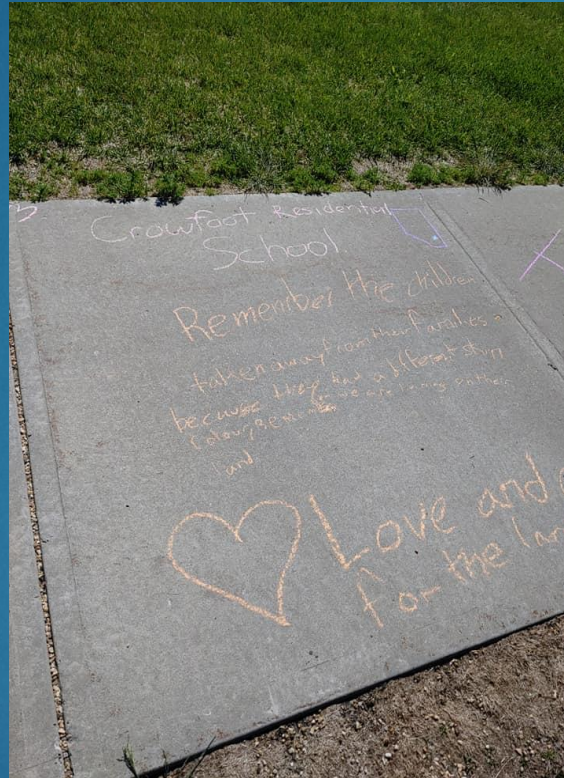 Crowfoot Residential
School
Remember the children
taken away from their families
because they had a different skin
Colour, Remember we are living on their
land
Love and
for the